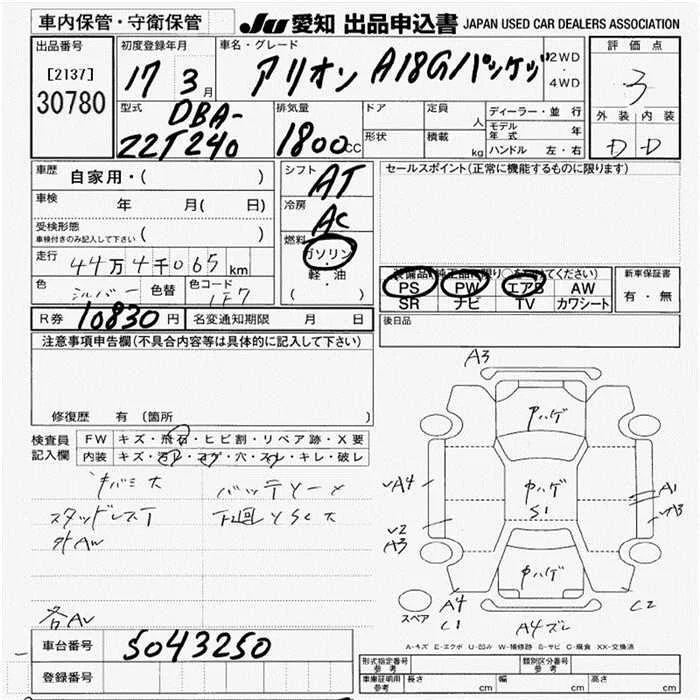 車内保管・守衛保管
JU 愛知 出品申込書 JAPAN USED CAR DEALERS ASSOCIATION
出品番号
[2137]
30780
初度登録年月
17 3 月
車名・グレード
アリオン A18Gパッケージ
2WD
・
4WD
評価点
3
外装 内装
D D
型式
DBA-
ZZT240
排気量
1800 CC
ドア
形状
定員 人
積載 kg
ディーラー・並行
モデル年式 年
ハンドル 左・右
車歴
自家用・( )
車検 年 月( 日)
受検形態
(車検付きのみ記入して下さい )
走行
44万4千065 km
色 シルバー 色替 色コード 1F7
シフト
AT
冷房
AC
燃料
ガソリン
・
軽油
・
( )
セールスポイント(正常に機能するものに限ります)
装備品(純正品に限り○を付けてください)
PS PW エアB AW
SR ナビ TV カワシート
新車保証書
有・無
R券 10830 円 名変通知期限 月 日
後日品
注意事項申告欄(不具合内容等は具体的に記入して下さい)
修復歴 有 (箇所 )
検査員
記入欄
FW キズ・飛石・ヒビ割・リペア跡・X要
内装 キズ・汚レ・コゲ・穴・スレ・キレ・破レ
キバミ大 バッテリー×
スタッドレスT 下廻りSC大
外AW
各AU
A3
Aハゲ
A4
Uハゲ
S1
A1
A3
U2
A3
Uハゲ
スペア
A4
C1
A4ズレ
C2
A-キズ E-エクボ U-凹み W-補修跡 S-サビ C-腐食 XX-交換済
車台番号
5043250
登録番号
形式指定番号
参考
類別区分番号
参考
車庫証明用
参考
長さ cm 幅 cm 高さ cm